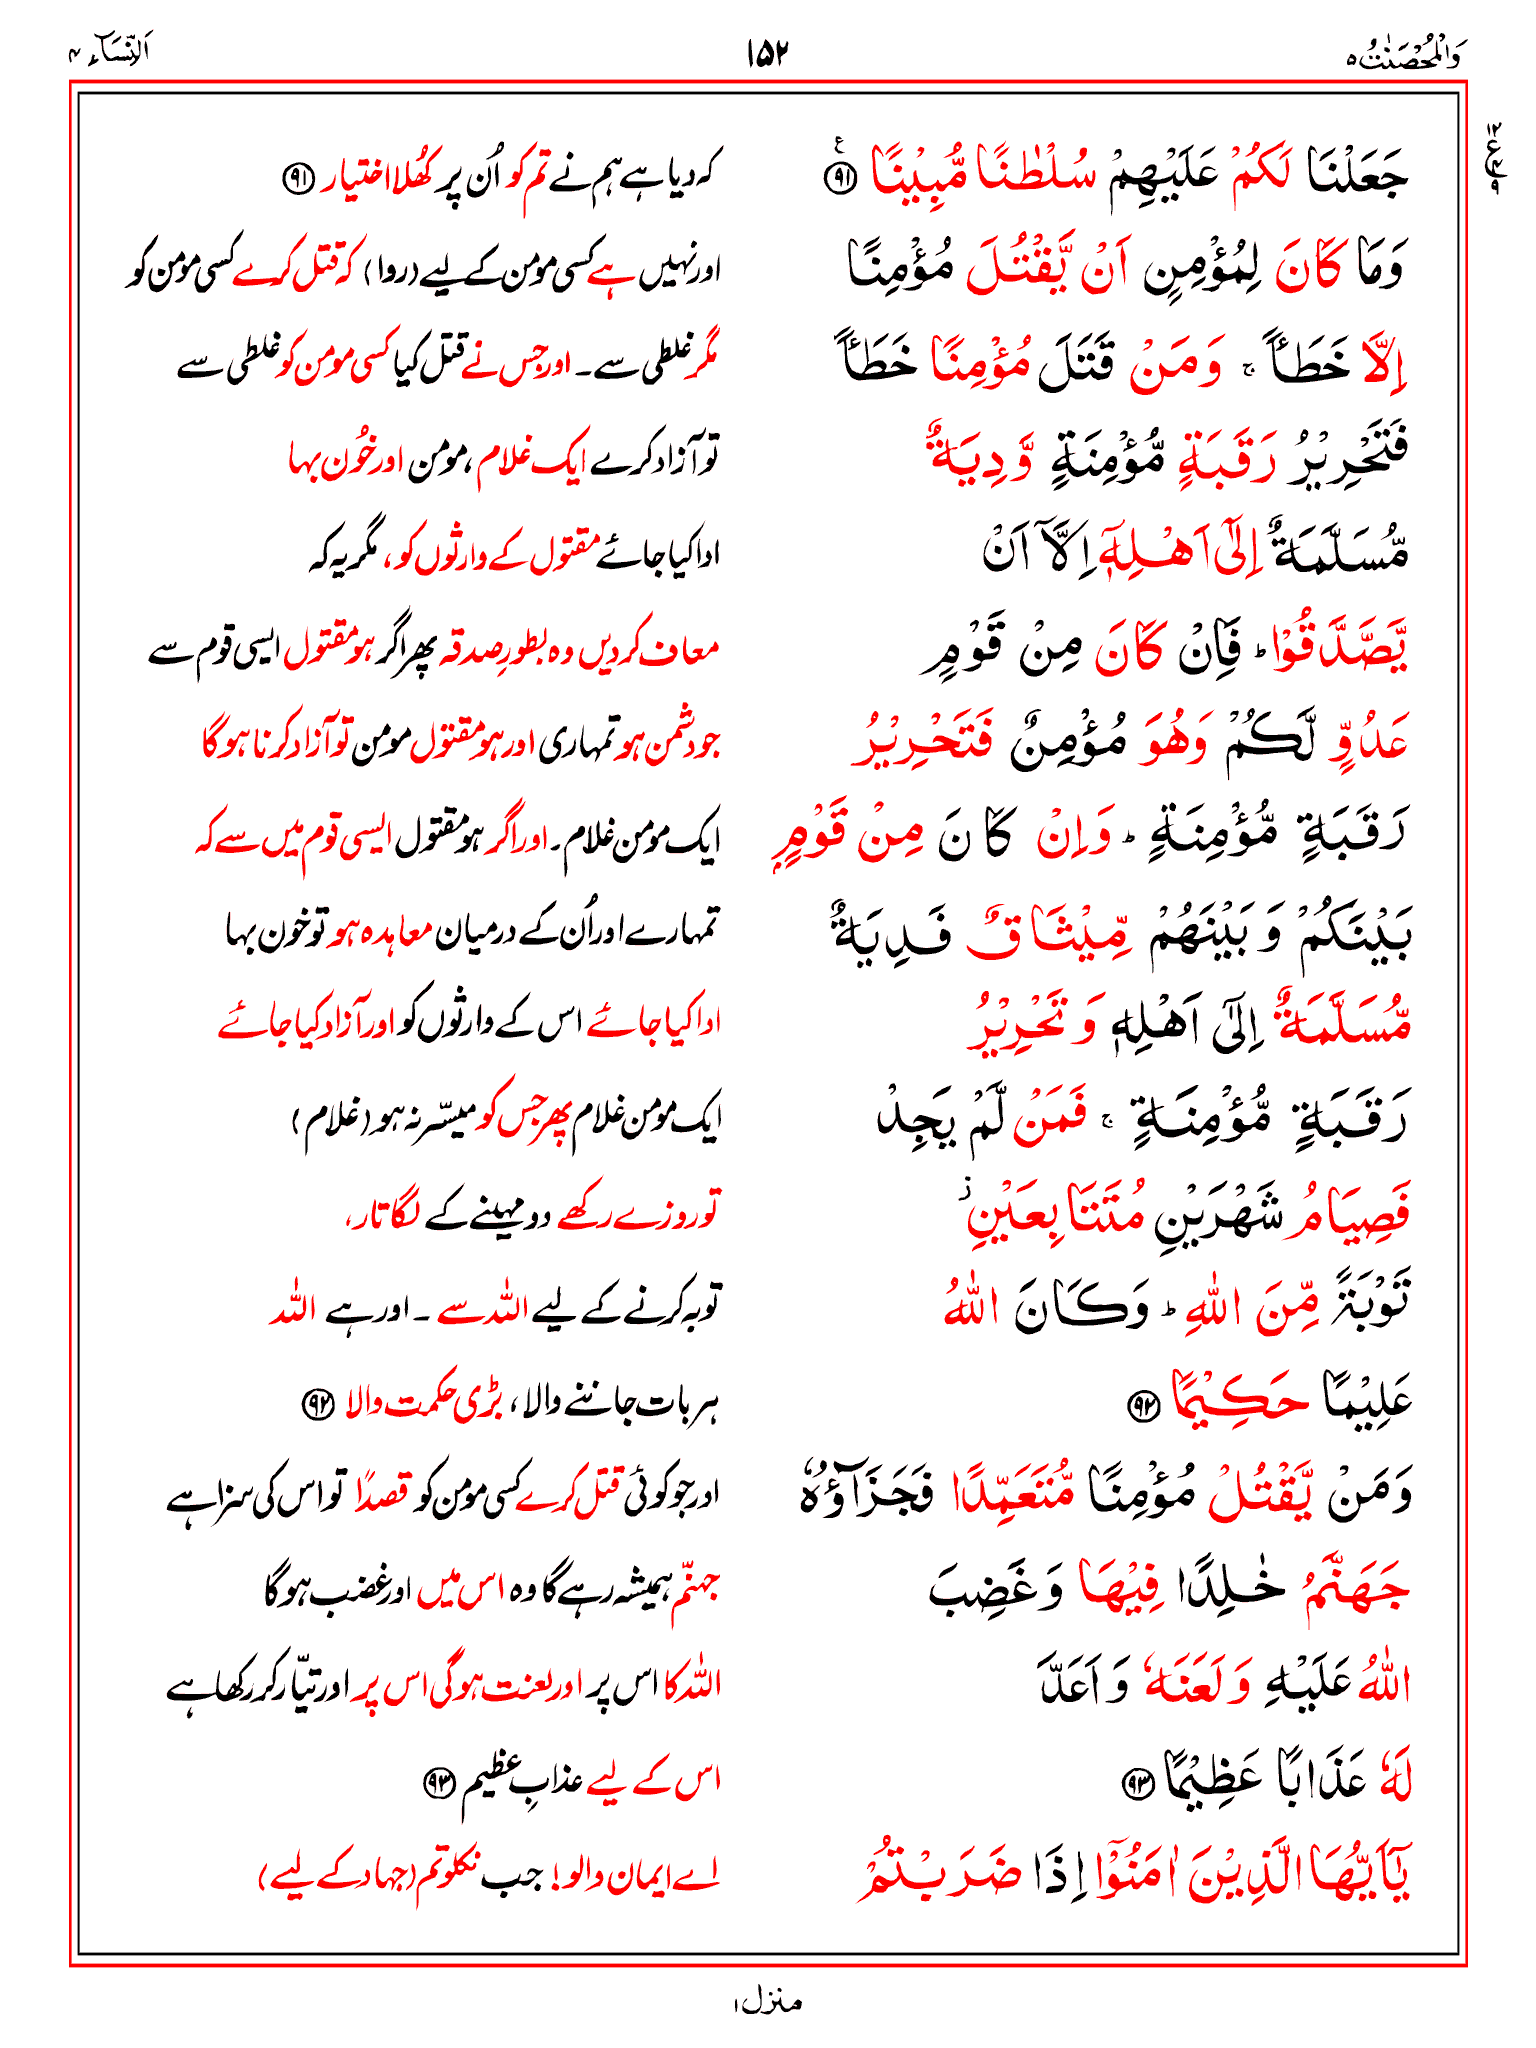 وَالْمُحْصَنٰتُ ۵ ۱۵۲ اَلنِّسَآء ۴
جَعَلْنَا لَكُمْ عَلَيْهِمْ سُلْطٰنًا مُّبِيْنًا ۹۱ ع کہ دیا ہے ہم نے تم کو اُن پر کھُلا اختیار ۹۱
وَمَا كَانَ لِمُؤْمِنٍ اَنْ يَّقْتُلَ مُؤْمِنًا اور نہیں ہے کسی مومن کے لیے (روا) کہ قتل کرے کسی مومن کو
اِلَّا خَطَـًٔا ۚ وَمَنْ قَتَلَ مُؤْمِنًا خَطَـًٔا مگر غلطی سے۔ اور جس نے قتل کیا کسی مومن کو غلطی سے
فَتَحْرِيْرُ رَقَبَةٍ مُّؤْمِنَةٍ وَّدِيَةٌ تو آزاد کرے ایک غلام، مومن اور خُون بہا
مُّسَلَّمَةٌ اِلٰٓى اَهْلِهٖٓ اِلَّآ اَنْ ادا کیا جائے مقتول کے وارثوں کو، مگر یہ کہ
يَّصَّدَّقُوْا ؕ فَاِنْ كَانَ مِنْ قَوْمٍ معاف کردیں وہ بطورِ صدقہ پھر اگر ہو مقتول ایسی قوم سے
عَدُوٍّ لَّكُمْ وَهُوَ مُؤْمِنٌ فَتَحْرِيْرُ جو دشمن ہو تمہاری اور ہو مقتول مومن تو آزاد کرنا ہوگا
رَقَبَةٍ مُّؤْمِنَةٍ ؕ وَاِنْ كَانَ مِنْ قَوْمٍۭ ایک مومن غلام۔ اور اگر ہو مقتول ایسی قوم میں سے کہ
بَيْنَكُمْ وَبَيْنَهُمْ مِّيْثَاقٌ فَدِيَةٌ تمہارے اور اُن کے درمیان معاہدہ ہو تو خون بہا
مُّسَلَّمَةٌ اِلٰٓى اَهْلِهٖ وَتَحْرِيْرُ ادا کیا جائے اس کے وارثوں کو اور آزاد کیا جائے
رَقَبَةٍ مُّؤْمِنَةٍ ۚ فَمَنْ لَّمْ يَجِدْ ایک مومن غلام پھر جس کو میسّر نہ ہو (غلام)
فَصِيَامُ شَهْرَيْنِ مُتَتَابِعَيْنِ ز تو روزے رکھے دو مہینے کے لگاتار،
تَوْبَةً مِّنَ اللّٰهِ ؕ وَكَانَ اللّٰهُ توبہ کرنے کے لیے اللہ سے ۔ اور ہے اللہ
عَلِيْمًا حَكِيْمًا ۹۲ ہر بات جاننے والا، بڑی حکمت والا ۹۲
وَمَنْ يَّقْتُلْ مُؤْمِنًا مُّتَعَمِّدًا فَجَزَآؤُهٗ اور جو کوئی قتل کرے کسی مومن کو قصدًا تو اس کی سزا ہے
جَهَنَّمُ خٰلِدًا فِيْهَا وَغَضِبَ جہنّم ہمیشہ رہے گا وہ اس میں اور غضب ہوگا
اللّٰهُ عَلَيْهِ وَلَعَنَهٗ وَاَعَدَّ اللہ کا اس پر اور لعنت ہوگی اس پر اور تیّار کر رکھا ہے
لَهٗ عَذَابًا عَظِيْمًا ۹۳ اس کے لیے عذابِ عظیم ۹۳
يٰٓاَيُّهَا الَّذِيْنَ اٰمَنُوْٓا اِذَا ضَرَبْتُمْ اے ایمان والو! جب نکلو تم (جہاد کے لیے)
منزل ۱